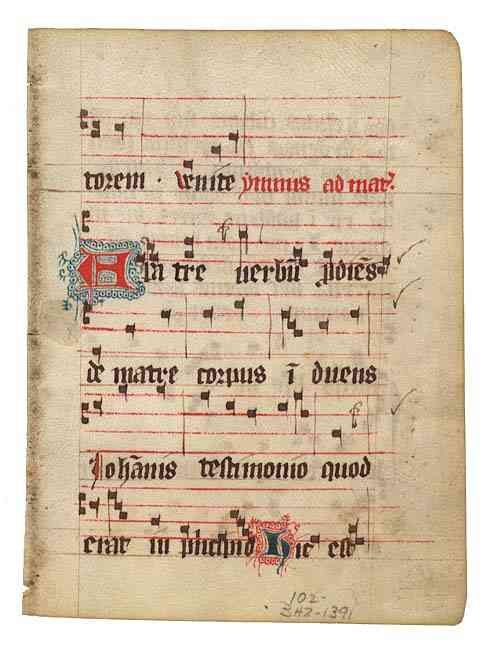 torem · Venite ymnus ad mat̉.
A Pa tre uerbū ꝓdiēs
de matre corpus ī duens
Johānis testimonio quod
erat in pͥncipio Hic est
102-
3HZ-1391